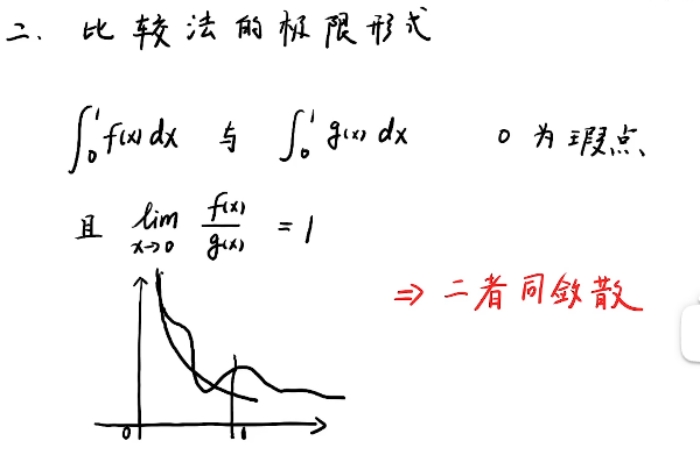 二、比较法的极限形式
∫₀¹ f(x) dx 与 ∫₀¹ g(x) dx 0 为瑕点、
且 lim_{x→0} f(x)/g(x) = 1
⇒ 二者同敛散
0 1